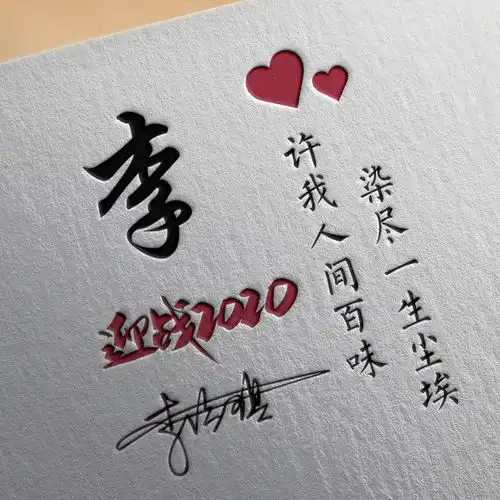 李
迎战2020
染尽一生尘埃
许我人间百味